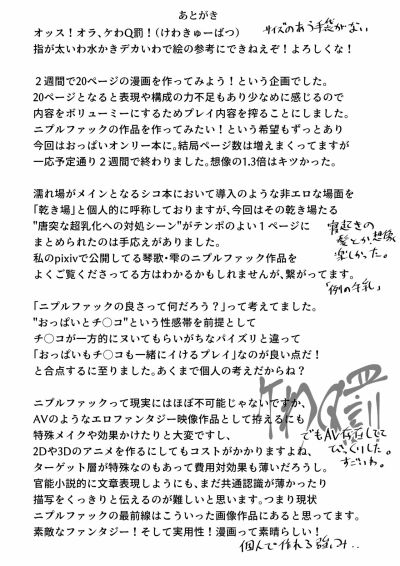 あとがき
オッス！オラ、ケわQ罰！(けわきゅーばつ)
サイズのあう手袋がない
指が太いわ水かきデカいわで絵の参考にできねえぞ！よろしくな！
２週間で20ページの漫画を作ってみよう！という企画でした。
20ページとなると表現や構成の力不足もあり少なめに感じるので
内容をボリューミーにするためプレイ内容を搾ることにしました。
ニプルファックの作品を作ってみたい！という希望もずっとあり
今回はおっぱいオンリー本に。結局ページ数は増えまくってますが
一応予定通り２週間で終わりました。想像の1.3倍はキツかった。
濡れ場がメインとなるシコ本において導入のような非エロな場面を
「乾き場」と個人的に呼称しておりますが、今回はその乾き場たる
"唐突な超乳化への対処シーン"がテンポのよい１ページに
まとめられたのは手応えがありました。
寝起きの
髪とか想像
楽しかった。
私のpixivで公開してる琴歌・雫のニプルファック作品を
よくご覧くださってる方はわかるかもしれませんが、繋がってます。
「例の牛乳」
「ニプルファックの良さって何だろう？」って考えてました。
"おっぱいとチ〇コ"という性感帯を前提として
チ〇コが一方的にヌいてもらいがちなパイズリと違って
「おっぱいもチ〇コも一緒にイけるプレイ」なのが良い点だ！
と合点するに至りました。あくまで個人の考えだからね？
ケわQ罰
ニプルファックって現実にはほぼ不可能じゃないですか、
AVのようなエロファンタジー映像作品として拵えるにも
特殊メイクや効果かけたりと大変ですし、
でもAV存在してて
びっくりした。
すごいわ。
2Dや3Dのアニメを作るにしてもコストがかかりますよね、
ターゲット層が特殊なのもあって費用対効果も薄いだろうし。
官能小説的に文章表現しようにも、まだ共通認識が薄かったり
描写をくっきりと伝えるのが難しいと思います。つまり現状
ニプルファックの最前線はこういった画像作品にあると思ってます。
素敵なファンタジー！そして実用性！漫画って素晴らしい！
個人で作れる強み・・